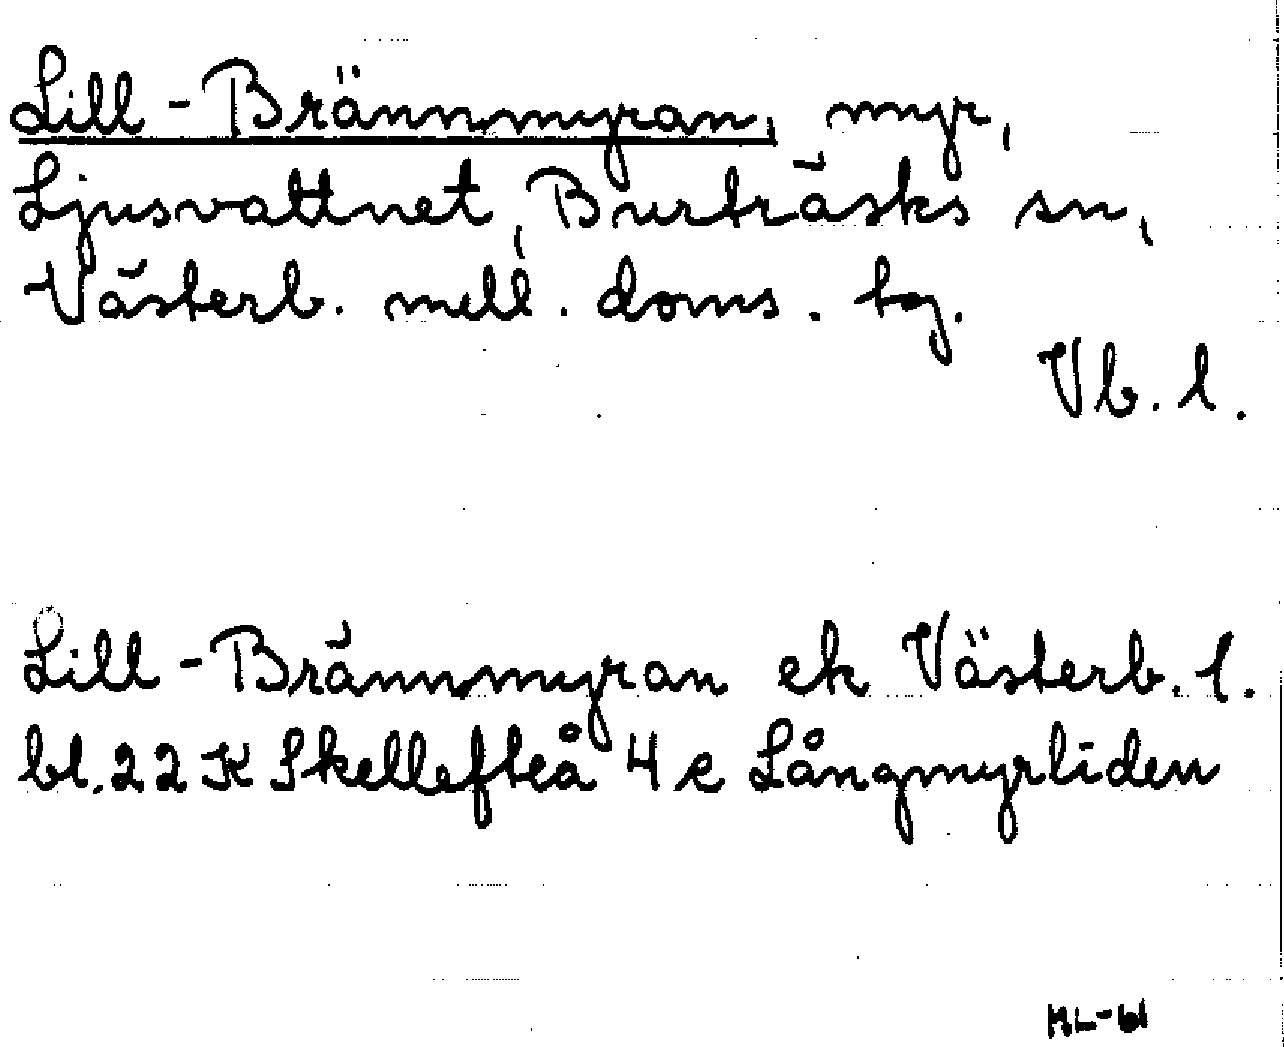 Lill-Brännmyran, myr,
Ljusvattnet, Burträsks sn,
Västerb. mell. doms. tg.
Vb. l.
Lill-Brännmyran ek Västerb. l.
bl. 22 K Skellefteå 4 e Långmyrliden
ML-61